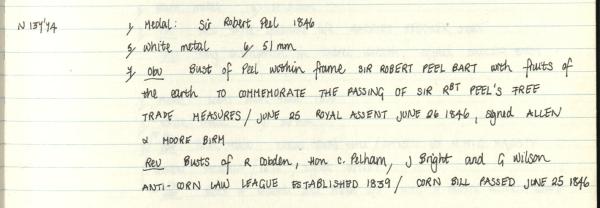 N 1374'4 1, Medal: Sir Robert Peel 1846
5, White metal 6, 51mm
7, Obv Bust of Peel within frame SIR ROBERT PEEL BART with fruits of
the earth TO COMMEMORATE THE PASSING OF SIR RBT PEEL'S FREE
TRADE MEASURES / JUNE 25 ROYAL ASSENT JUNE 26 1846, signed ALLEN
& MOORE BIRM
Rev Busts of R Cobden, Hon C. Pelham, J Bright and G Wilson
ANTI-CORN LAW LEAGUE ESTABLISHED 1839 / CORN BILL PASSED JUNE 25 1846